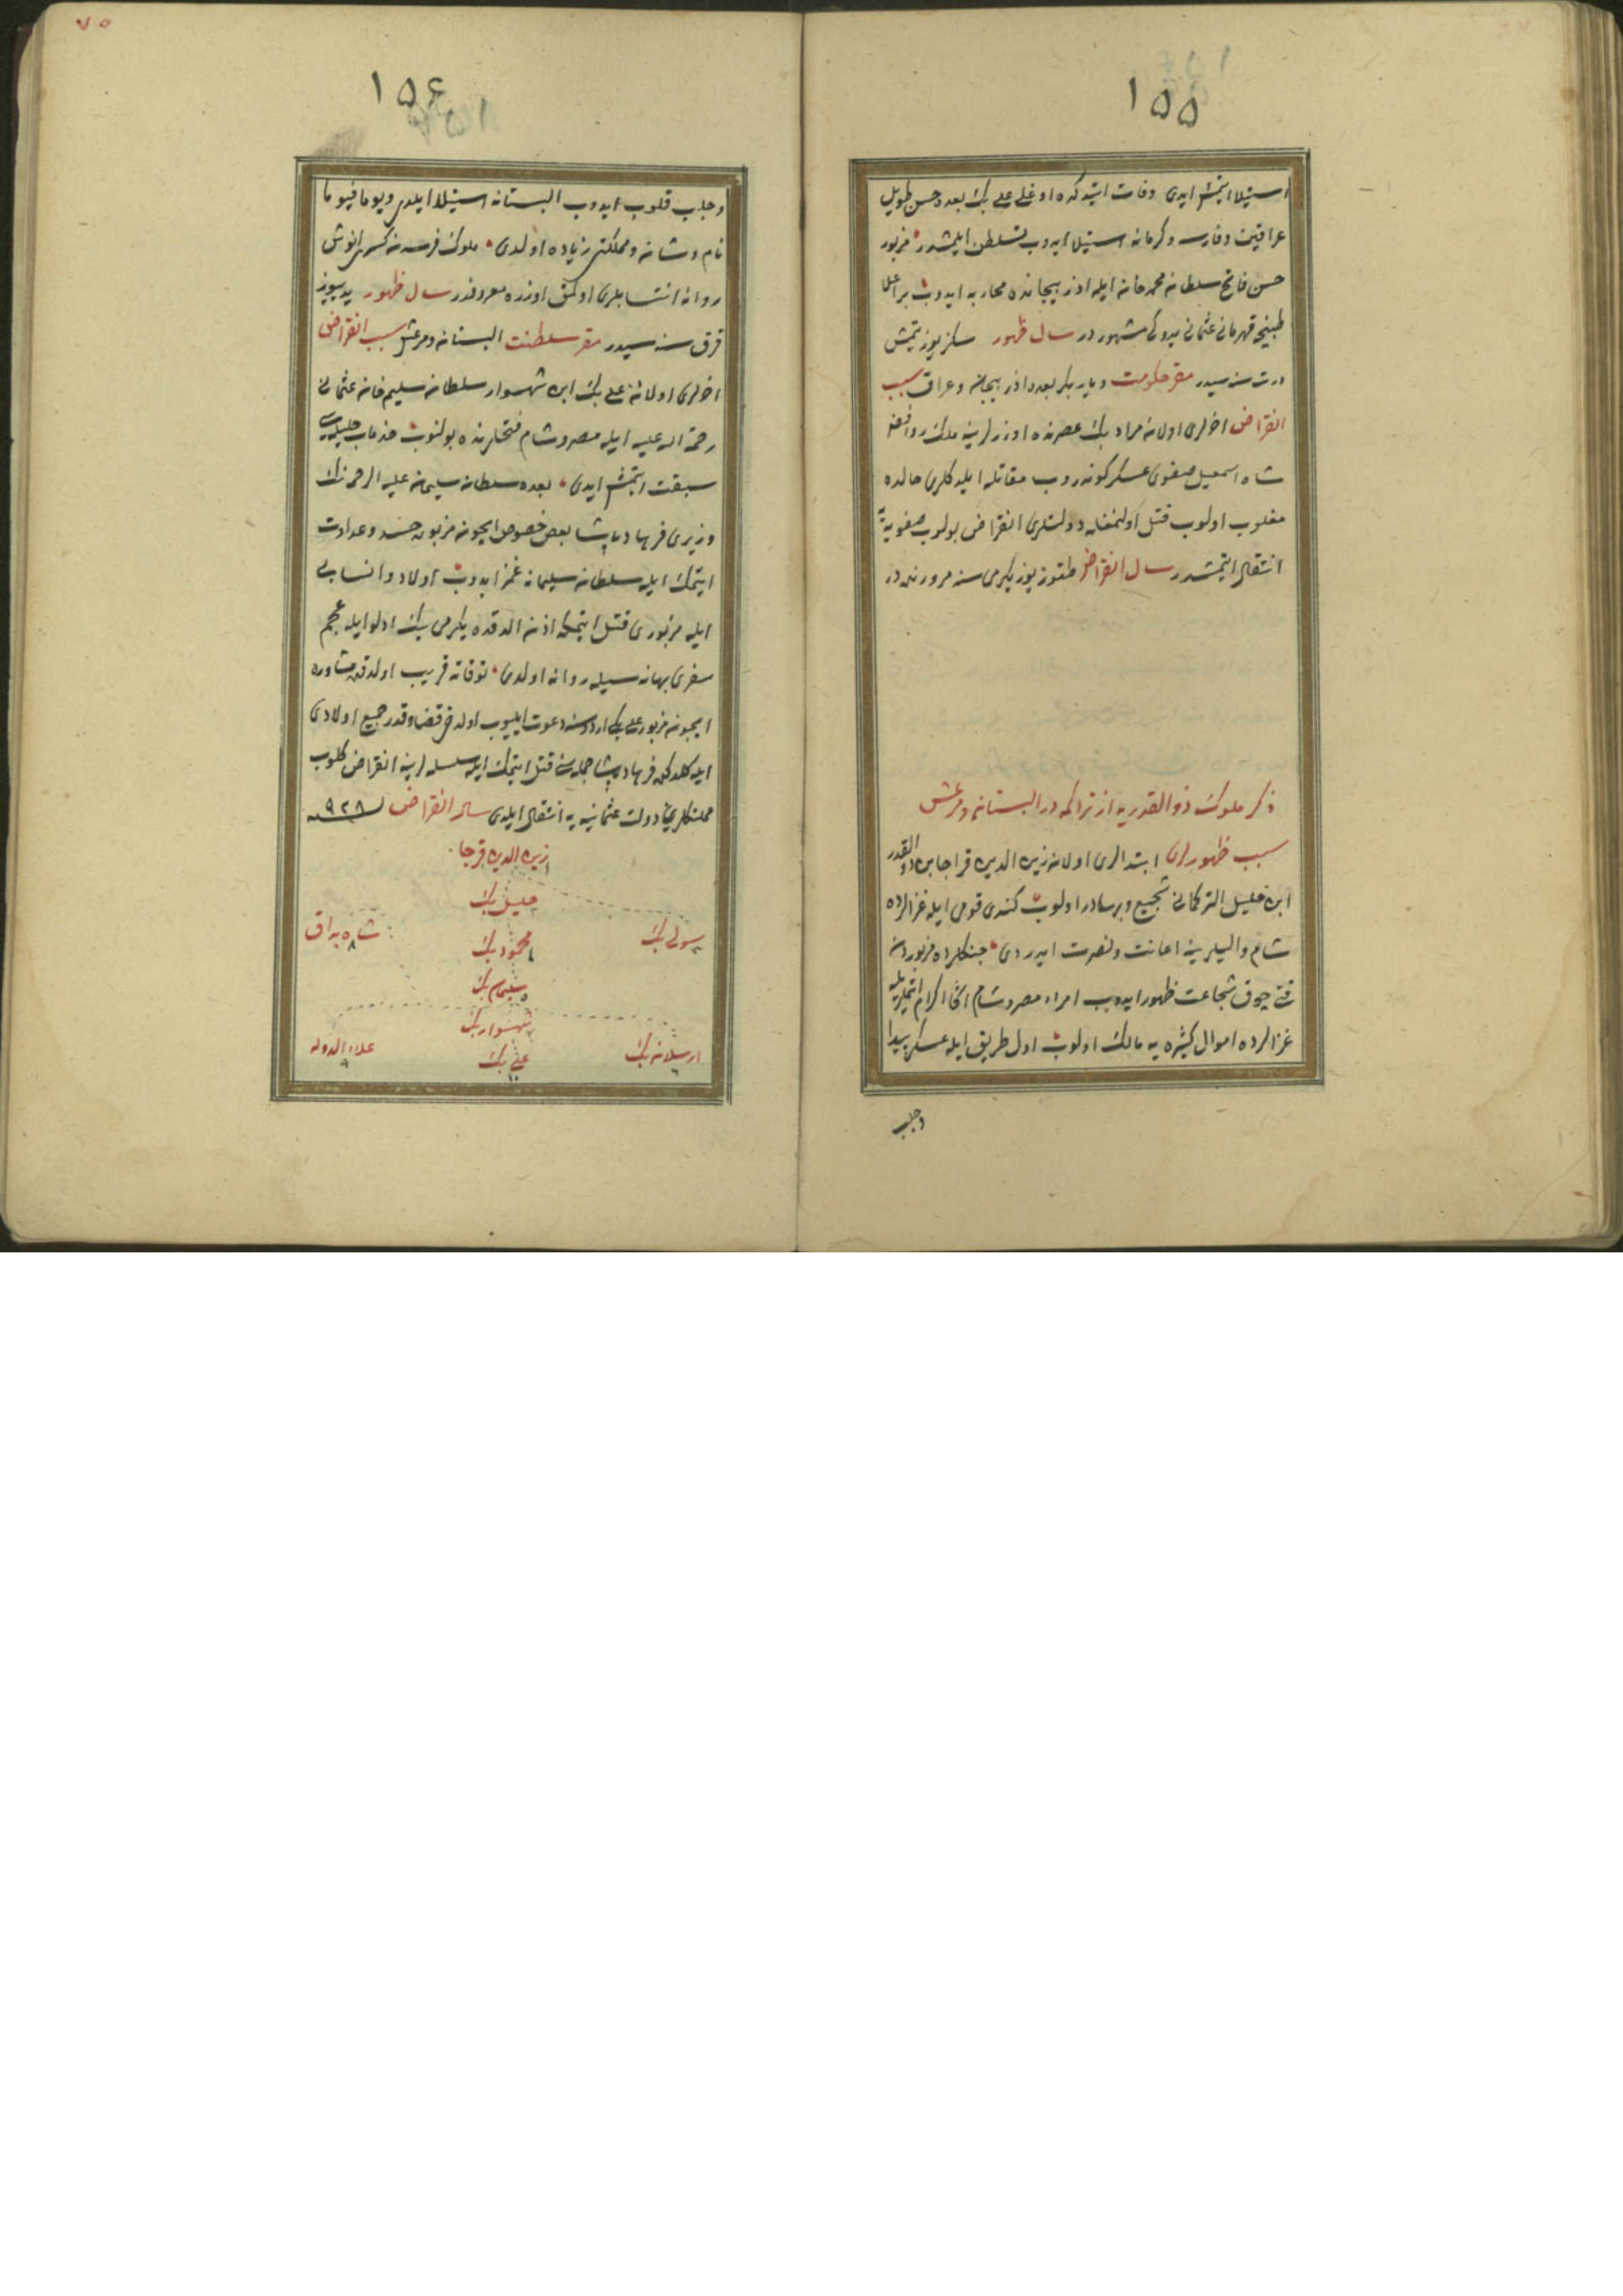 ١٥٥
استيلا ايتمش ايدى وفات ايتدكده اوغلى على بك بعده حسن طويل
عراقين وفارس وكرمانه استيلا ايدوب تسلطن ايلمشدر مزبور
حسن فاتح سلطان محمد خان ايله اذربيجانده محاربه ايدوب بر اعلا
طپنچه قهرمانى عثمانى يدوكى مشهوردر سال ظهور سكز يوز يتمش
درت سنه سيدر مقر حكومت ديار بكر بعده اذربيجان وعراق سبب
انقراض اخرلرى اولان مراد بك عصرنده اوزرلرينه ملك روافض
شاه اسمعيل صفوى عسكر كوندروب مقاتله ايلدكلرى حالده
مغلوب اولوب قتل اولنمغله دولتلرى انقراض بولوب صفويه يه
انتقال ايتمشدر سال انقراض طقوز يوز يكرمى سنه مرورنده در
ذكر ملوك ذو القدريه از تراكمه در البستان ومرعش
سبب ظهورلرى ابتدالرى اولان زين الدين قراجا بن ذو القدر
ابن خليل التركمانى شجيع وبهادر اولوب كندى قومى ايله غزالرده
شام واليلرينه اعانت ونصرت ايدردى جنكلرده مزبوردن
قتى چوق شجاعت ظهور ايدوب امراء مصر وشام اكا اكرام ايتملريله
غزالرده اموال كثيره يه مالك اولوب اول طريق ايله عسكر پيدا
وجلب
٧٥
١٥٦
وجلب قلوب ايدوب البستانه استيلا ايلدى ويوما فيوما
نام وشانى ومملكتى زياده اولدى ملوك فرسدن كسرى انوش
روانه انتسابلرى اولمق اوزره معروفدر سال ظهور يديوز
قرق سنه سيدر مقر سلطنت البستان ومرعش سبب انقراض
اخرلرى اولان على بك ابن شهسوار سلطان سليم خان عثمانى
رحمة الله عليه ايله مصر وشام فتحلرنده بولنوب خدمات جليله سى
سبقت ايتمش ايدى بعده سلطان سليمان عليه الرحمه نك
وزيرى فرهاد پاشا بعض خصوص ايچون مزبوره حسد وعداوت
ايتمك ايله سلطان سليمانه غمز ايدوب اولاد وانسابى
ايله مزبورى قتل ايتمكه اذن الدقده يكرمى بيك ادلو ايله عجم
سفرى بهانه سيله روانه اولدى توقاته قريب اولدقده مشاوره
ايچون مزبور على بكى اردوسنه دعوت ايليوب اولدخى قضا وقدر جميع اولادى
ايله كلدكده فرهاد پاشا جمله سنى قتل ايتمك ايله سلسله لرينه انقراض كلوب
مملكتلرى دولت عثمانيه يه انتقال ايلدى سال انقراض سنه ٩٢٨
زين الدين قرجا ١
خليل بك
سولى بك
محمود بك ٤
شاه بداق ٨
سليمان بك ٥
شهسوار بك
ارسلان بك ٦
على بك ١٠
علاء الدوله ٩